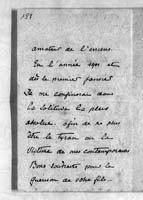 188
amateur de l'encens.
En l'année 1901 et
dès le premier janvier
Je me confinerai dans
la Solitude la plus
absolue afin de ne plus
être le tyran ou la
Victime de mes contemporains
Bons souhaits pour la
guérison de votre fils.